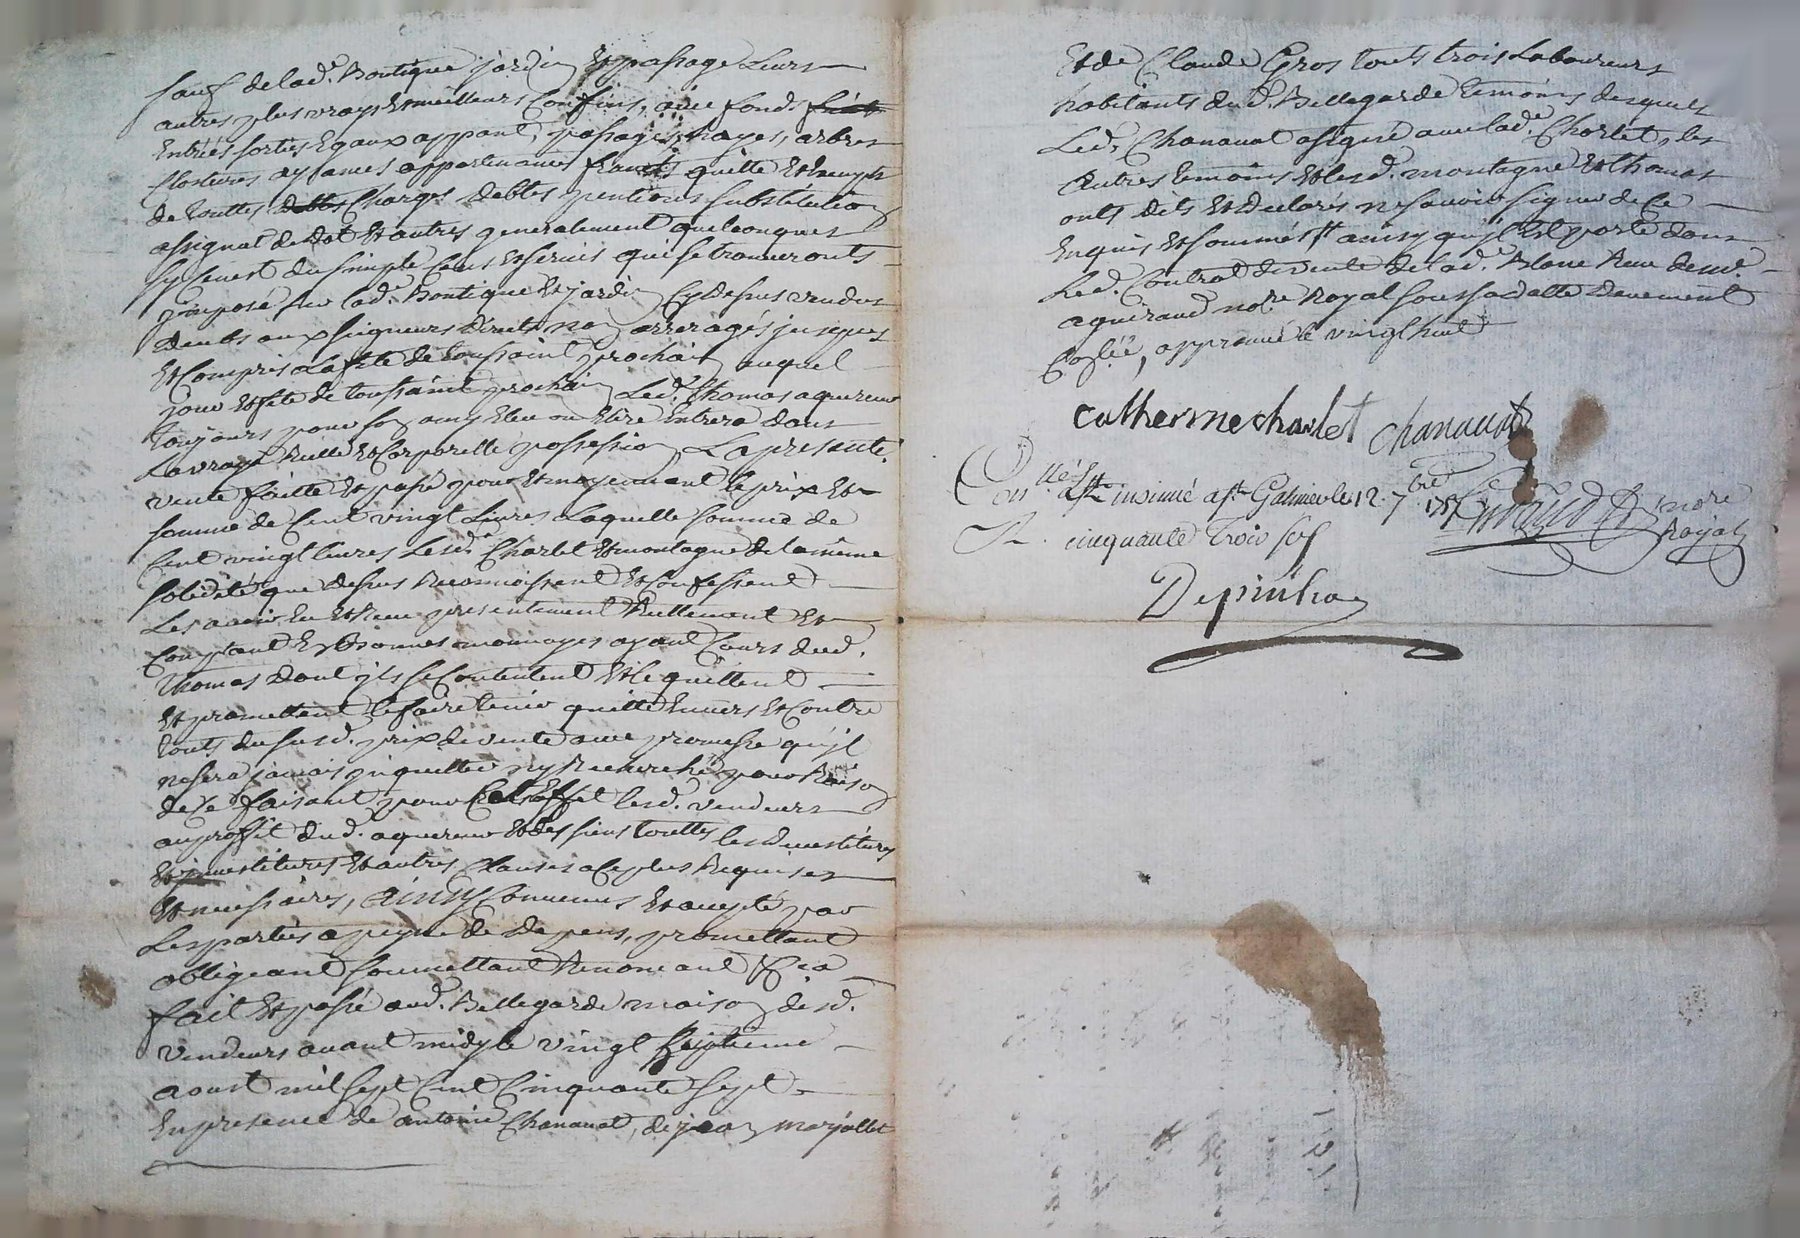 sauf de lad.e Boutique jardin Et passage Leurs
autres plus vrays Et meilleurs Confins, avec fond.
Entrées sorties Egaux appant, passages, hayes, arbres
clostures aysances appartenances francs quitte Et Exempte
de touttes Charges debtes pentions substitution
assignat de dot Et autres generalement quelconques
sy ce n'est du simple Cens Et servis qui se trouveronts
imposé sur lad.e Boutique Et jardin Cy dessus vendus
deubs aux seigneurs directs non arreragés jusques
Et Compris La fete de toussaint prochain auquel
jour Et fete de toussaint prochain Led. Thomas aquereur
toujours pour son amy Eleu ou Elire Entrera dans
La vraye Réelle Et Corporelle possession La presente
vente faitte Et passé pour Et moyennant le prix Et
somme de Cent vingt Livres Laquelle somme de
Cent vingt livres Lesd. Charlet Et montagne de la même
solidité que dessus Reconnoissent Et Confessent
Les avoir Eu Et Receu presentement Réellement Et
Comptant En Bonnes monnoyes ayant Cours dud.
Thomas dont ils se Contentent Et le quittent
Et promettent le faire tenir quitte Envers Et Contre
touts du susd. prix de vente avec promesse qu'jl
ne sera jamais jnquietté ny Recherché pour Raison
de Ce faisant pour Cet Effet lesd. vendeurs
au proffit dud. aquereur Et des siens touttes les devestitures
Et jnvestitures Et autres Clauses a Ce plus Requises
Et necessaires, ainsy Convenus Et accepté par
Les parties a peyne de Depens, promettant
obligeant soumettant Renonceant &Ca
fait Et passé aud. Bellegarde maison desd.
vendeurs avant midy le vingt septieme
aoust mil sept Cent Cinquante sept
En presence de antoine Chanavat, de jean marjollet
Et de Claude Gros touts trois Laboureurs
habitants dud. Bellegarde temoins desquels
Led. Chanavat a signé avec lad.e Charlet, les
autres temoins Et lesd. montagne Et thomas
onts dits Et Declarés ne savoir signer de Ce
Enquis Et sommés ainsy qu'jl Est porté dans
Led. Contrat de vente
aquereur no.re Royal soussad
approuvé le vingt huit
catherine charlet chanavat
Con.llé insinué a S.t Galmier le 12. 7.bre 1757
R. cinquante Trois sols no.re Royal
Depinhac